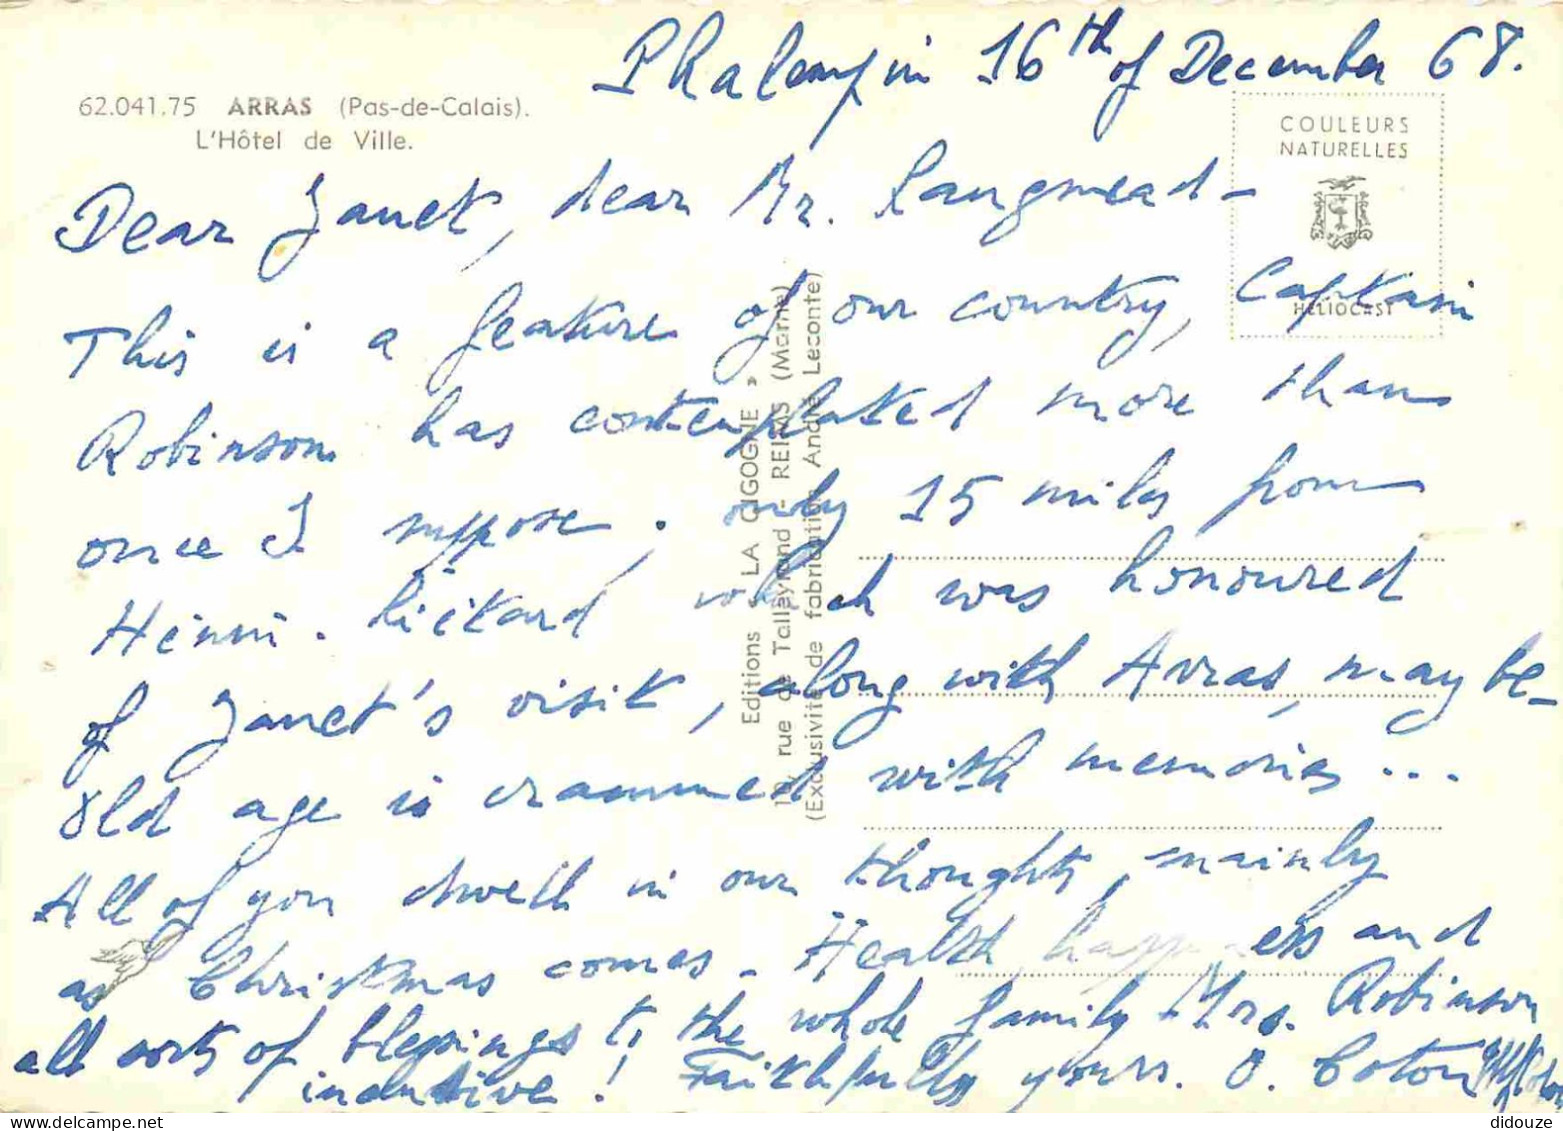 Phalempin 16th of December 68.
62.041.75 ARRAS (Pas-de-Calais).
L'Hôtel de Ville.
COULEURS
NATURELLES
HELIOCAST
Dear Janet, dear Mr. Langmead -
This is a feature of our country, Captain
Robinson has contemplated more than
once I suppose. only 15 miles from
Henin-Liétard which was honoured
of Janet's visit, along with Arras, may be -
Old age is crammed with memories...
All of you dwell in our thoughts, mainly
as Christmas comes - Health, happiness and
all sorts of blessings to the whole family, Mrs. Robinson
inclusive! Faithfully yours. O. Coton
Editions « LA CIGOGNE »
rue de Talleyrand - REIMS (Marne)
(Exclusivité de fabrication André Leconte)
didouze